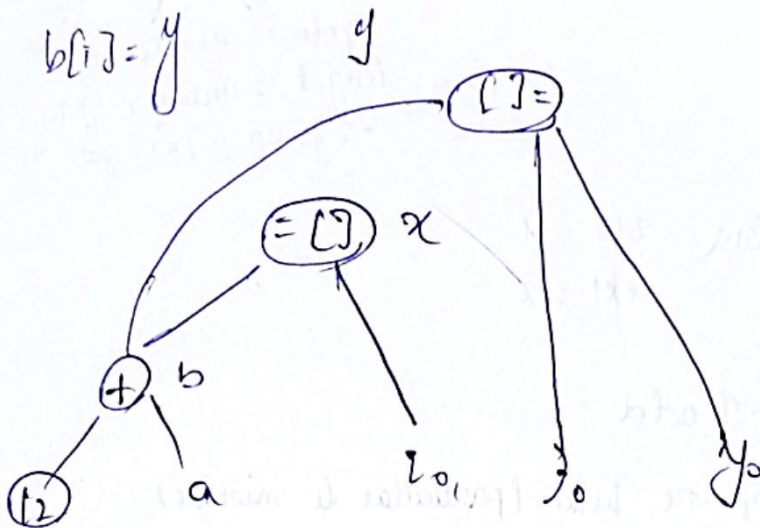 b[i] = y
y
[ ] =
= [ ] x
+ b
12 a i₀ j₀ y₀